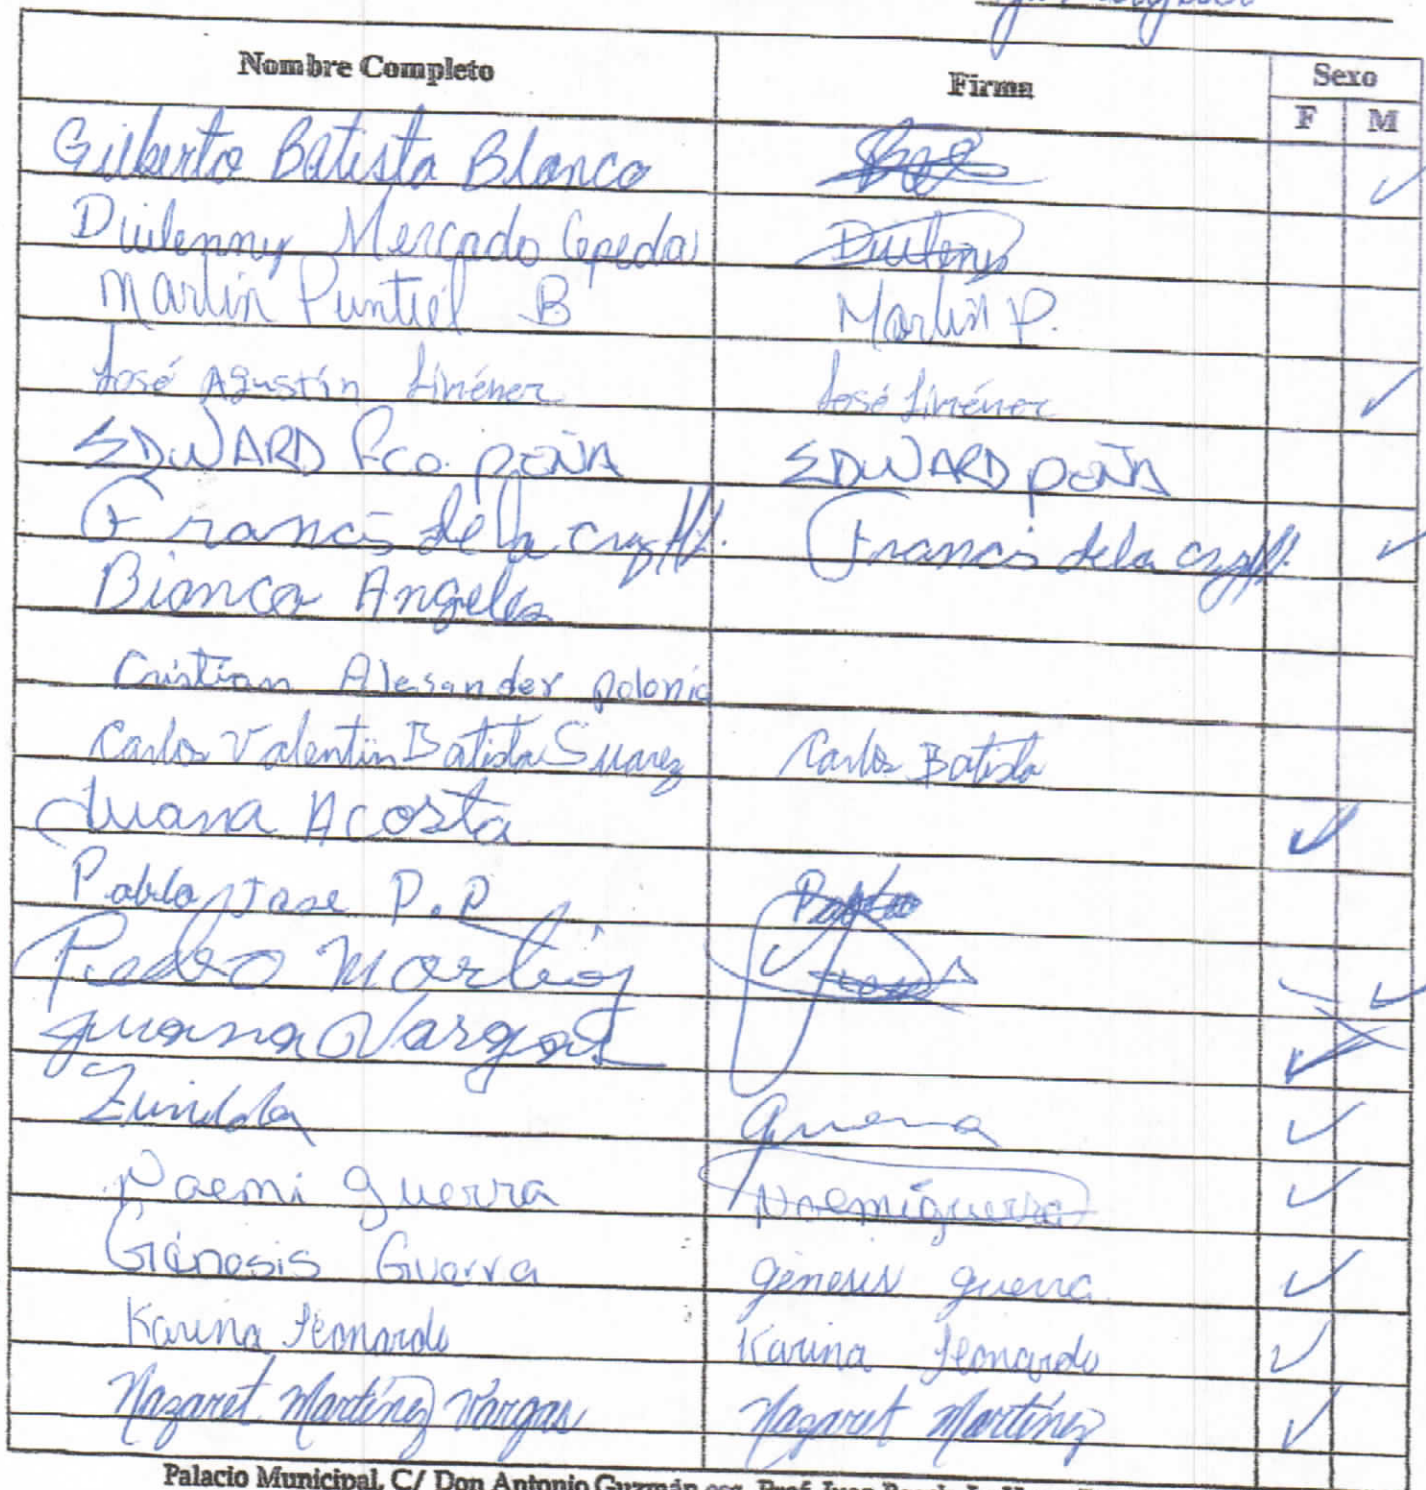 Nombre Completo Firma Sexo
F M
Gilberto Batista Blanco
Duilenny Mercado Cepeda Duilenny
Martin Puntiel B Martin P.
José Agustín Jiménez José Jiménez ✓
EDWARD Fco. PEÑA EDWARD PEÑA
Francis de la cruz Francis de la cruz ✓
Bianca Angeles
Cristian Alesander polonia
Carlos Valentin Batista Suarez Carlos Batista
Juana Acosta ✓
Pablo Jose P.P Pablo
Pedro Martínez ✓
Juana Vargas ✓
Guerra ✓
Noemi Guerra Noemi guerra ✓
Génesis Guerra genesis guerra ✓
Karina Leonardo Karina Leonardo ✓
Nazaret Martínez Vargas Nazaret Martínez ✓
Palacio Municipal, C/ Don Antonio Guzmán esq. Prof. Juan